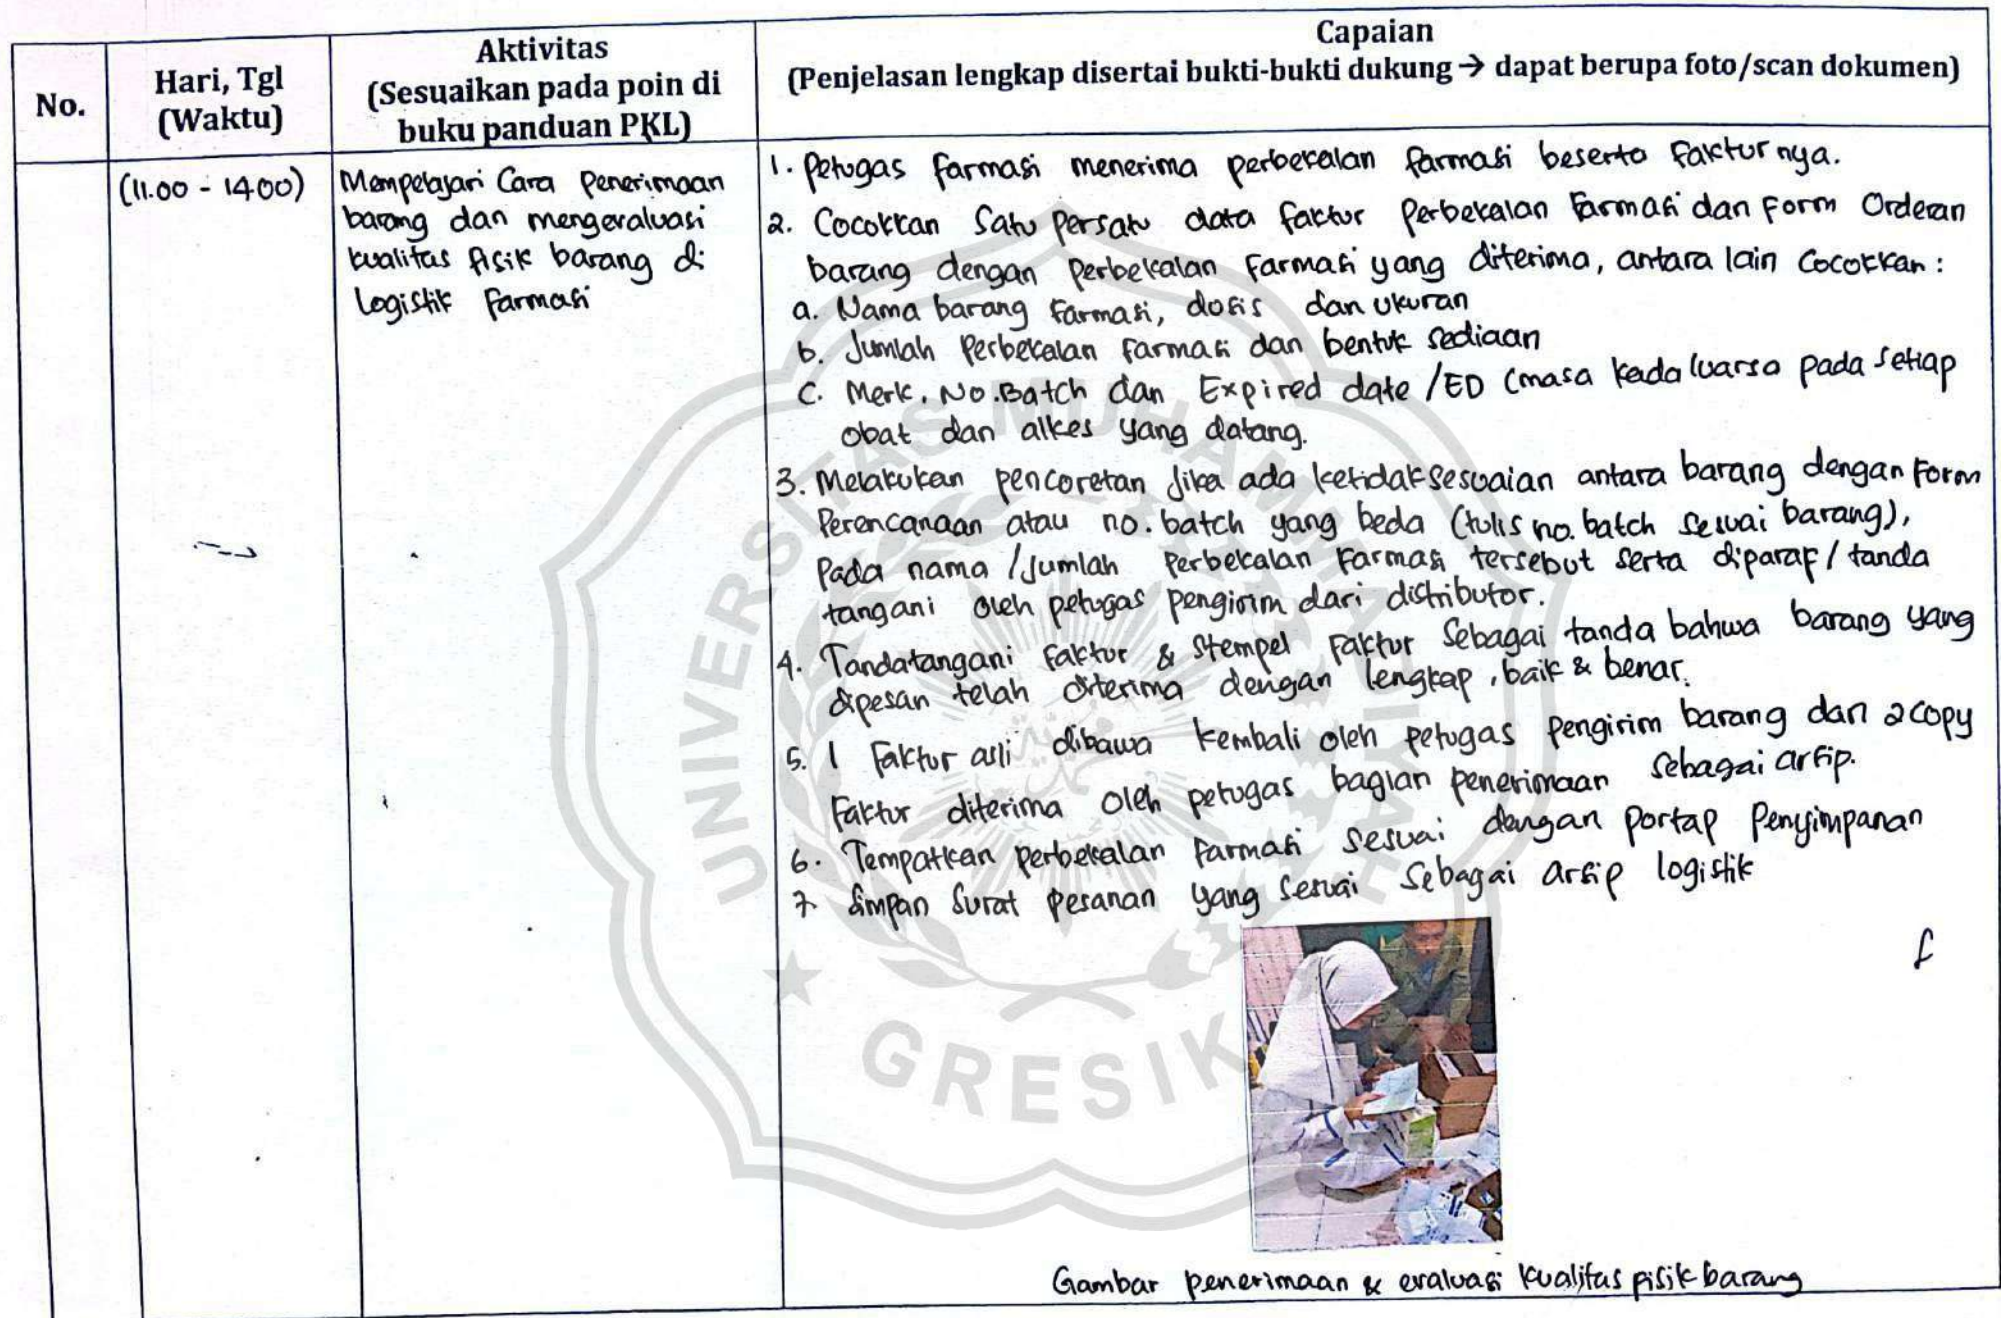 No.
Hari, Tgl
(Waktu)
Aktivitas
(Sesuaikan pada poin di
buku panduan PKL)
Capaian
(Penjelasan lengkap disertai bukti-bukti dukung → dapat berupa foto/scan dokumen)
(11.00 - 1400)
Mempelajari Cara Penerimaan
barang dan mengevaluasi
kualitas fisik barang di
Logistik Farmasi
1. Petugas farmasi menerima perbekalan farmasi beserta Fakturnya.
2. Cocokkan Satu Persatu data faktur Perbekalan Farmasi dan Form Orderan
barang dengan perbekalan Farmasi yang diterima, antara lain Cocokkan :
a. Nama barang Farmasi, dosis dan ukuran
b. Jumlah Perbekalan farmasi dan bentuk sediaan
C. Merk, No.Batch dan Expired date /ED (masa kadaluarsa pada setiap
obat dan alkes yang datang.
3. Melakukan pencoretan jika ada ketidaksesuaian antara barang dengan Form
Perencanaan atau no. batch yang beda (tulis no. batch sesuai barang),
Pada nama /Jumlah Perbekalan Farmasi tersebut serta diparaf / tanda
tangani oleh petugas pengirim dari distributor.
4. Tandatangani Faktur & Stempel Faktur Sebagai tanda bahwa barang yang
dipesan telah diterima dengan lengkap, baik & benar.
5. 1 Faktur asli dibawa kembali oleh petugas pengirim barang dan 2 copy
Faktur diterima oleh petugas bagian penerimaan sebagai arsip.
6. Tempatkan perbekalan Farmasi sesuai dengan portap Penyimpanan
7 Simpan Surat Pesanan yang sesuai sebagai arsip logistik
Gambar penerimaan & evaluasi kualitas fisik barang
UNIVERSITAS MUHAMMADIYAH
GRESIK